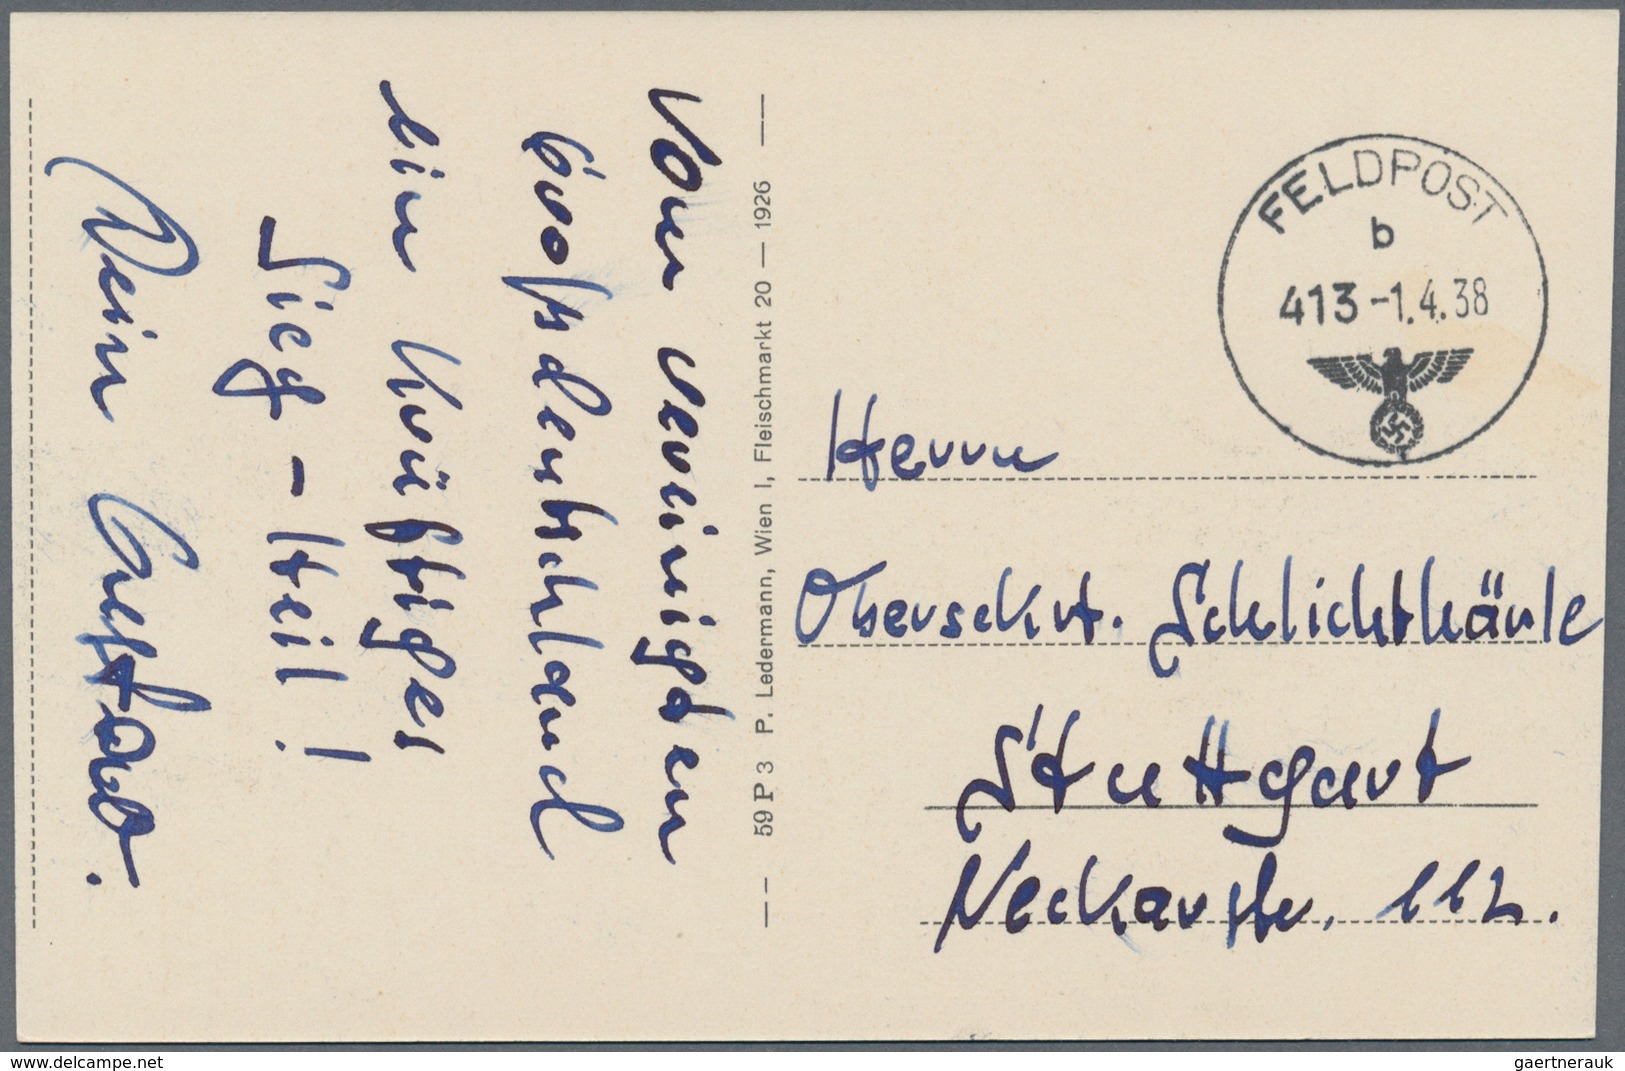 Vom vereinigten
Grossdeutschland
ein kräftiges
Sieg-Heil!
Dein
59 P 3 P. Ledermann, Wien I, Fleischmarkt 20 — 1926
FELDPOST
b
413 -1.4.38
Herrn
Obersekrt. Schlichthärle
Stuttgart
Neckarstr. 112.
www.delcampe.net
gaertnerauk